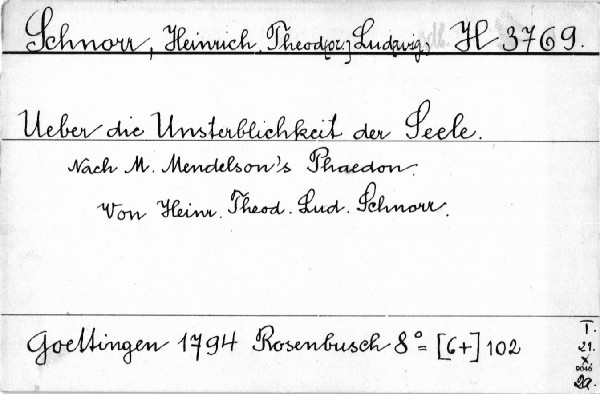 Schnorr, Heinrich Theod[or] Ludwig, H 3769.
Ueber die Unsterblichkeit der Seele.
Nach M. Mendelson's Phaedon.
Von Heinr. Theod. Lud. Schnorr.
Goettingen 1794 Rosenbusch 8° = [6+] 102
I.
21.
X
2a.